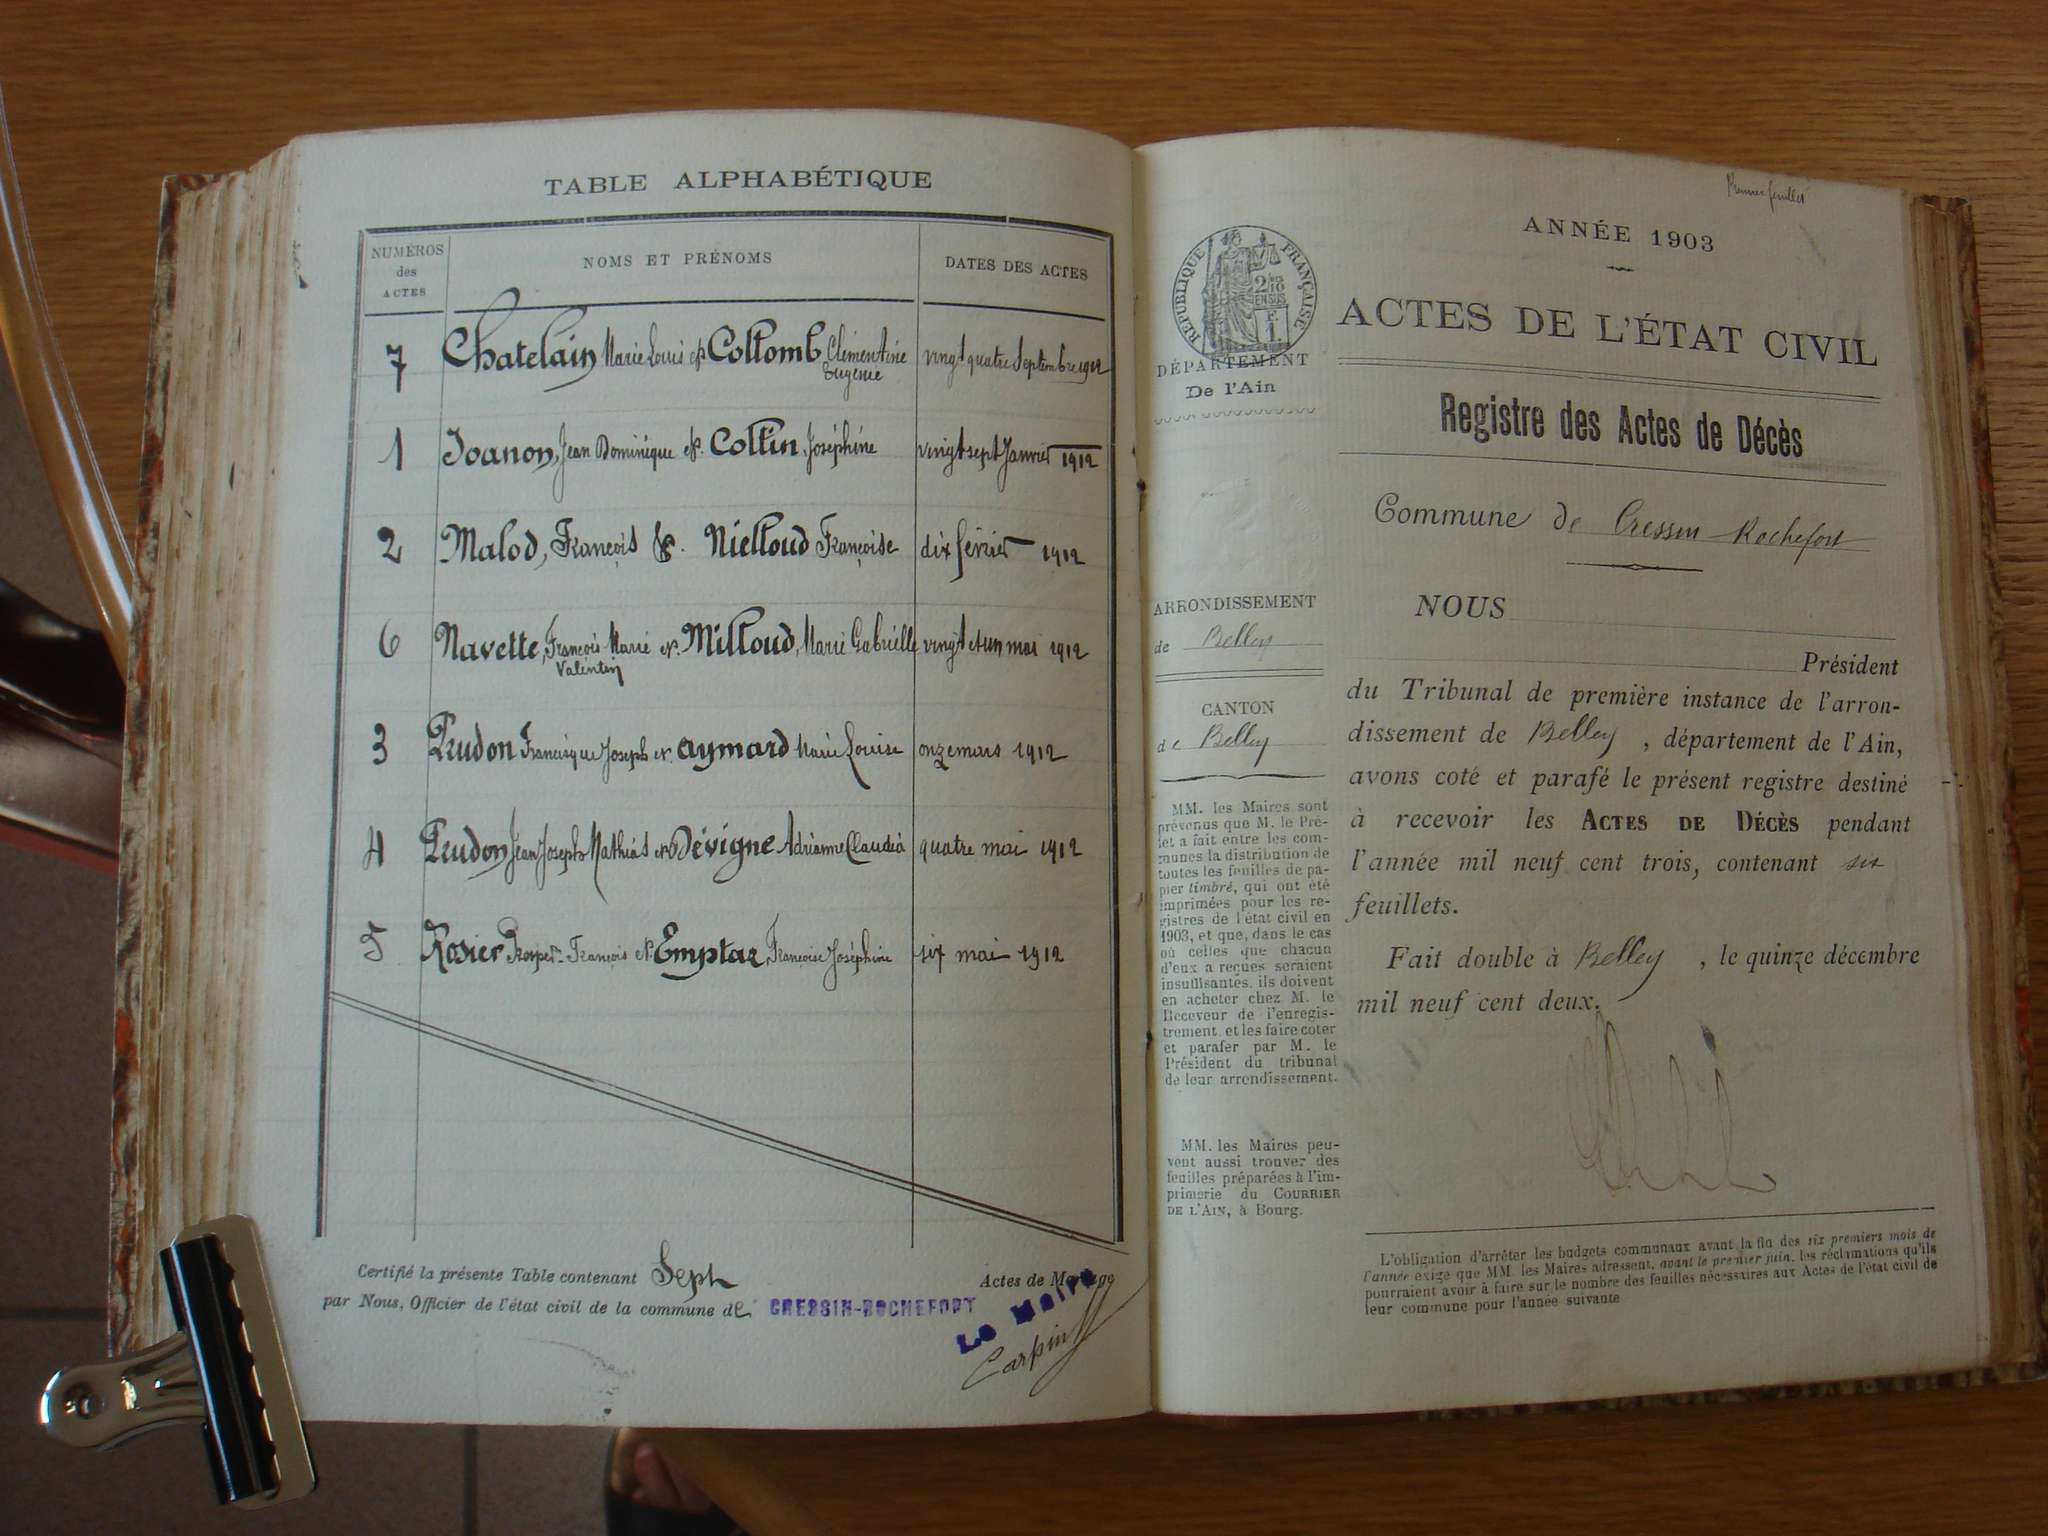 TABLE ALPHABÉTIQUE
NUMÉROS
des
ACTES
NOMS ET PRÉNOMS
DATES DES ACTES
7 Chatelain Marie Louis & Collomb Clémentine vingt quatre Septembre 1912
Eugénie
1 Joanon, Jean Dominique & Collin Joséphine vingt sept Janvier 1912
2 Malod, François & Nielloud Françoise dix février 1912
6 Navette, François Marie & Milloud, Marie Gabrielle vingt et un mai 1912
Valentin
3 Prudon Francisque Joseph & aymard Marie Louise onze mars 1912
4 Prudon Jean Joseph Mathias & Dévigne Adrianne Claudia quatre mai 1912
5 Rosier Prosper François & Emptaz Françoise Joséphine six mai 1912
Certifié la présente Table contenant Sept Actes de Mariage
par Nous, Officier de l'état civil de la commune de CRESSIN-ROCHEFORT
Le Maire
Carpin
Premier feuillet
ANNÉE 1903
RÉPUBLIQUE FRANÇAISE
2/10
EN SUS
F.
1
DÉPARTEMENT
De l'Ain
ACTES DE L'ÉTAT CIVIL
Registre des Actes de Décès
Commune de Cressin-Rochefort
ARRONDISSEMENT
de Belley
CANTON
de Belley
MM. les Maires sont
prévenus que M. le Pré-
fet a fait entre les com-
munes la distribution de
toutes les feuilles de pa-
pier timbré, qui ont été
imprimées pour les re-
gistres de l'état civil en
1903, et que, dans le cas
où celles que chacun
d'eux a reçues seraient
insuffisantes, ils doivent
en acheter chez M. le
Receveur de l'enregis-
trement, et les faire coter
et parafer par M. le
Président du tribunal
de leur arrondissement.
MM. les Maires peu-
vent aussi trouver des
feuilles préparées à l'im-
primerie du COURRIER
DE L'AIN, à Bourg.
NOUS
Président
du Tribunal de première instance de l'arron-
dissement de Belley, département de l'Ain,
avons coté et parafé le présent registre destiné
à recevoir les ACTES DE DÉCÈS pendant
l'année mil neuf cent trois, contenant six
feuillets.
Fait double à Belley, le quinze décembre
mil neuf cent deux.
L'obligation d'arrêter les budgets communaux avant la fin des six premiers mois de
l'année exige que MM. les Maires adressent, avant le premier juin, les réclamations qu'ils
pourraient avoir à faire sur le nombre des feuilles nécessaires aux Actes de l'état civil de
leur commune pour l'année suivante